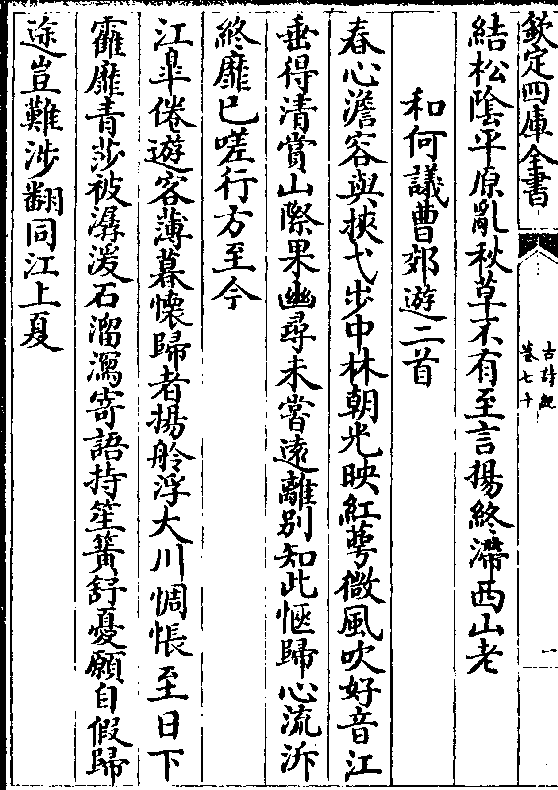 欽定四庫全書
古詩紀
卷七十
一
結松陰平原亂秋草不有至言揚終滯西山老
和何議曹郊遊二首
春心澹容與挾弋步中林朝光映紅萼微風吹好音江
垂得清賞山際果幽尋未嘗遠離別知此愜歸心流泝
終靡已嗟行方至今
江臯倦遊客薄暮懷歸者揚舲浮大川惆悵至日下
靃靡青莎被潺湲石溜瀉寄語持笙簧舒憂願自假歸
途豈難涉翻同江上夏